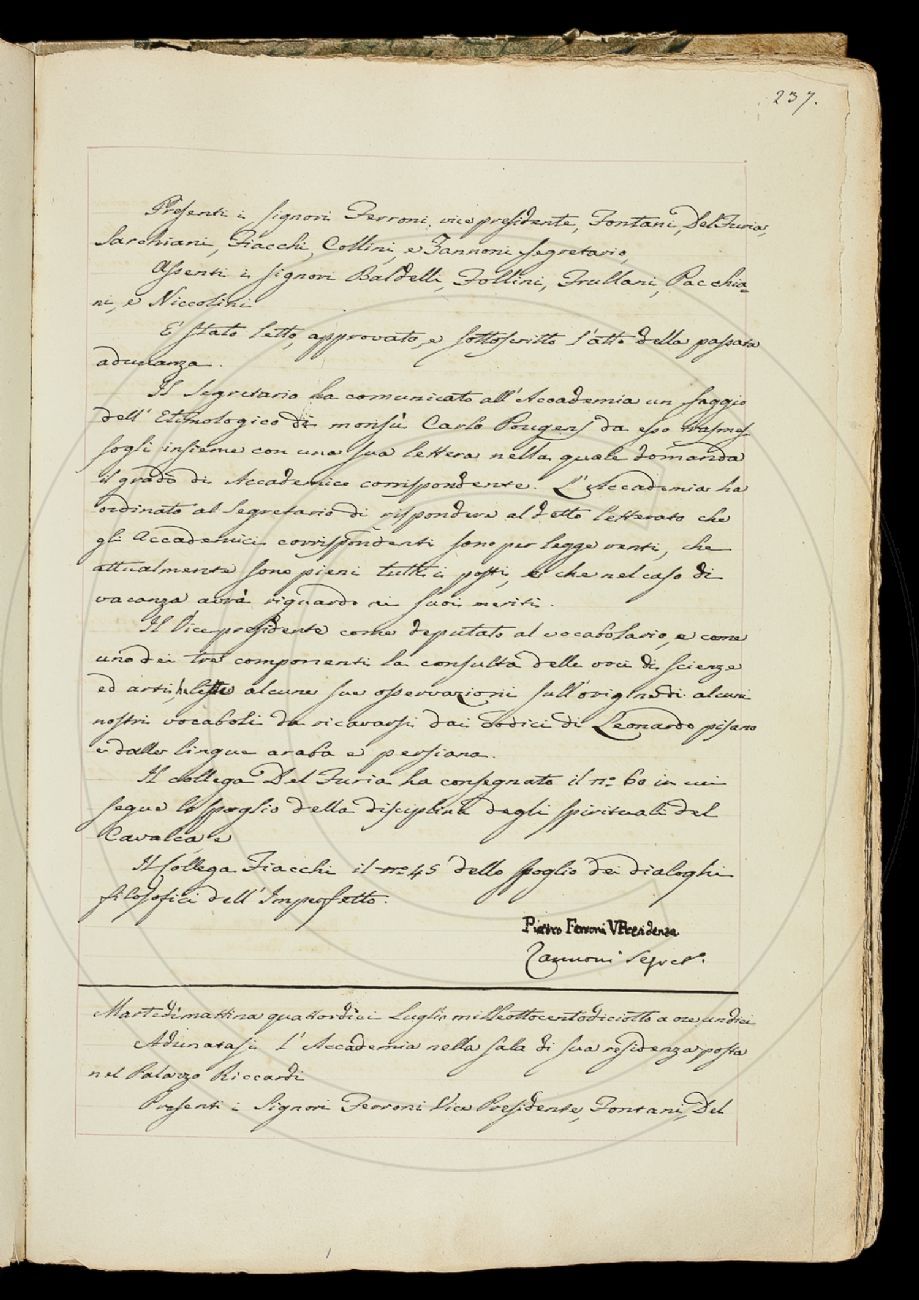 237.
Presenti i Signori Ferroni vice presidente, Fontani, Del Furia,
Sarchiani, Fiacchi, Collini, e Zannoni segretario,
Assenti i signori Baldelli, Follini, Frullani, Pacchia=
ni, e Niccolini
E' stato letto, approvato, e sottoscritto l'atto della passata
adunanza.
Il Segretario ha comunicato all'Accademia un saggio
dell'Etimologico di monsù Carlo Pougens da esso trasmes-
sogli insieme con una sua lettera nella quale domanda
il grado di Accademico corrispondente. L'Accademia ha
ordinato al Segretario di rispondere al detto letterato che
gli Accademici corrispondenti sono per legge venti, che
attualmente sono pieni tutti i posti, e che nel caso di
vacanza avrà riguardo ai suoi meriti.
Il Vicepresidente come deputato al vocabolario, e come
uno dei tre componenti la consulta delle voci di scienze
ed arti, ha lette alcune sue osservazioni sull'origine di alcuni
nostri vocaboli da ricavarsi dai Codici di Leonardo pisano
e dalle lingue araba e persiana.
Il collega Del Furia ha consegnato il nº. 60 in cui
segue lo spoglio della disciplina degli spirituali del
Cavalca e
Il Collega Fiacchi il nº. 45 dello spoglio dei dialoghi
filosofici dell'Imperfetto.
Pietro Ferroni VPresidente
Zannoni Segret.º
Martedì mattina quattordici Luglio milleottocentodiciotto a ore undici
Adunatasi l'Accademia nella sala di sua residenza posta
nel Palazzo Riccardi
Presenti i Signori Ferroni Vice Presidente, Fontani, Del